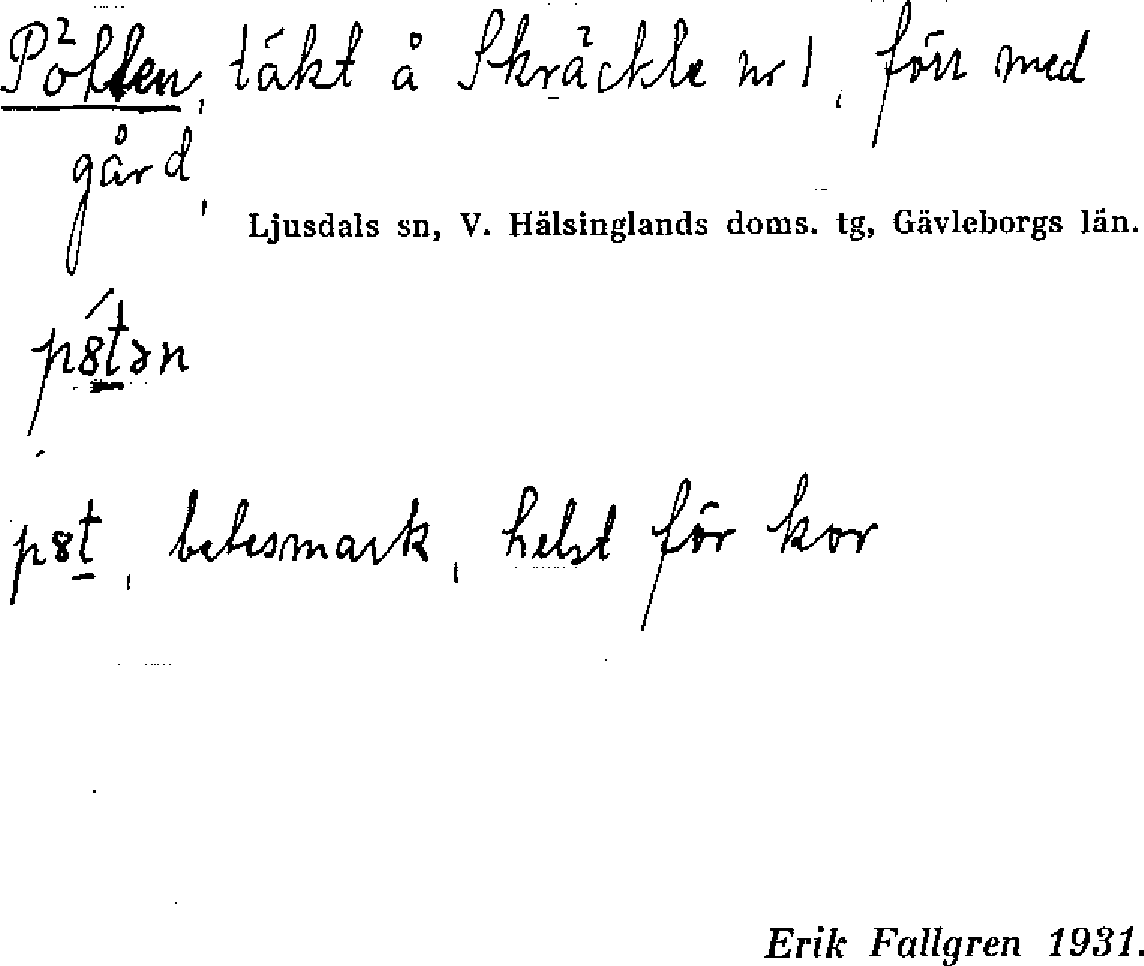 Pötten, täkt å Skräckle nr 1, förr med
gård,
Ljusdals sn, V. Hälsinglands doms. tg, Gävleborgs län.
betesmark, helst för kor
Erik Fallgren 1931.